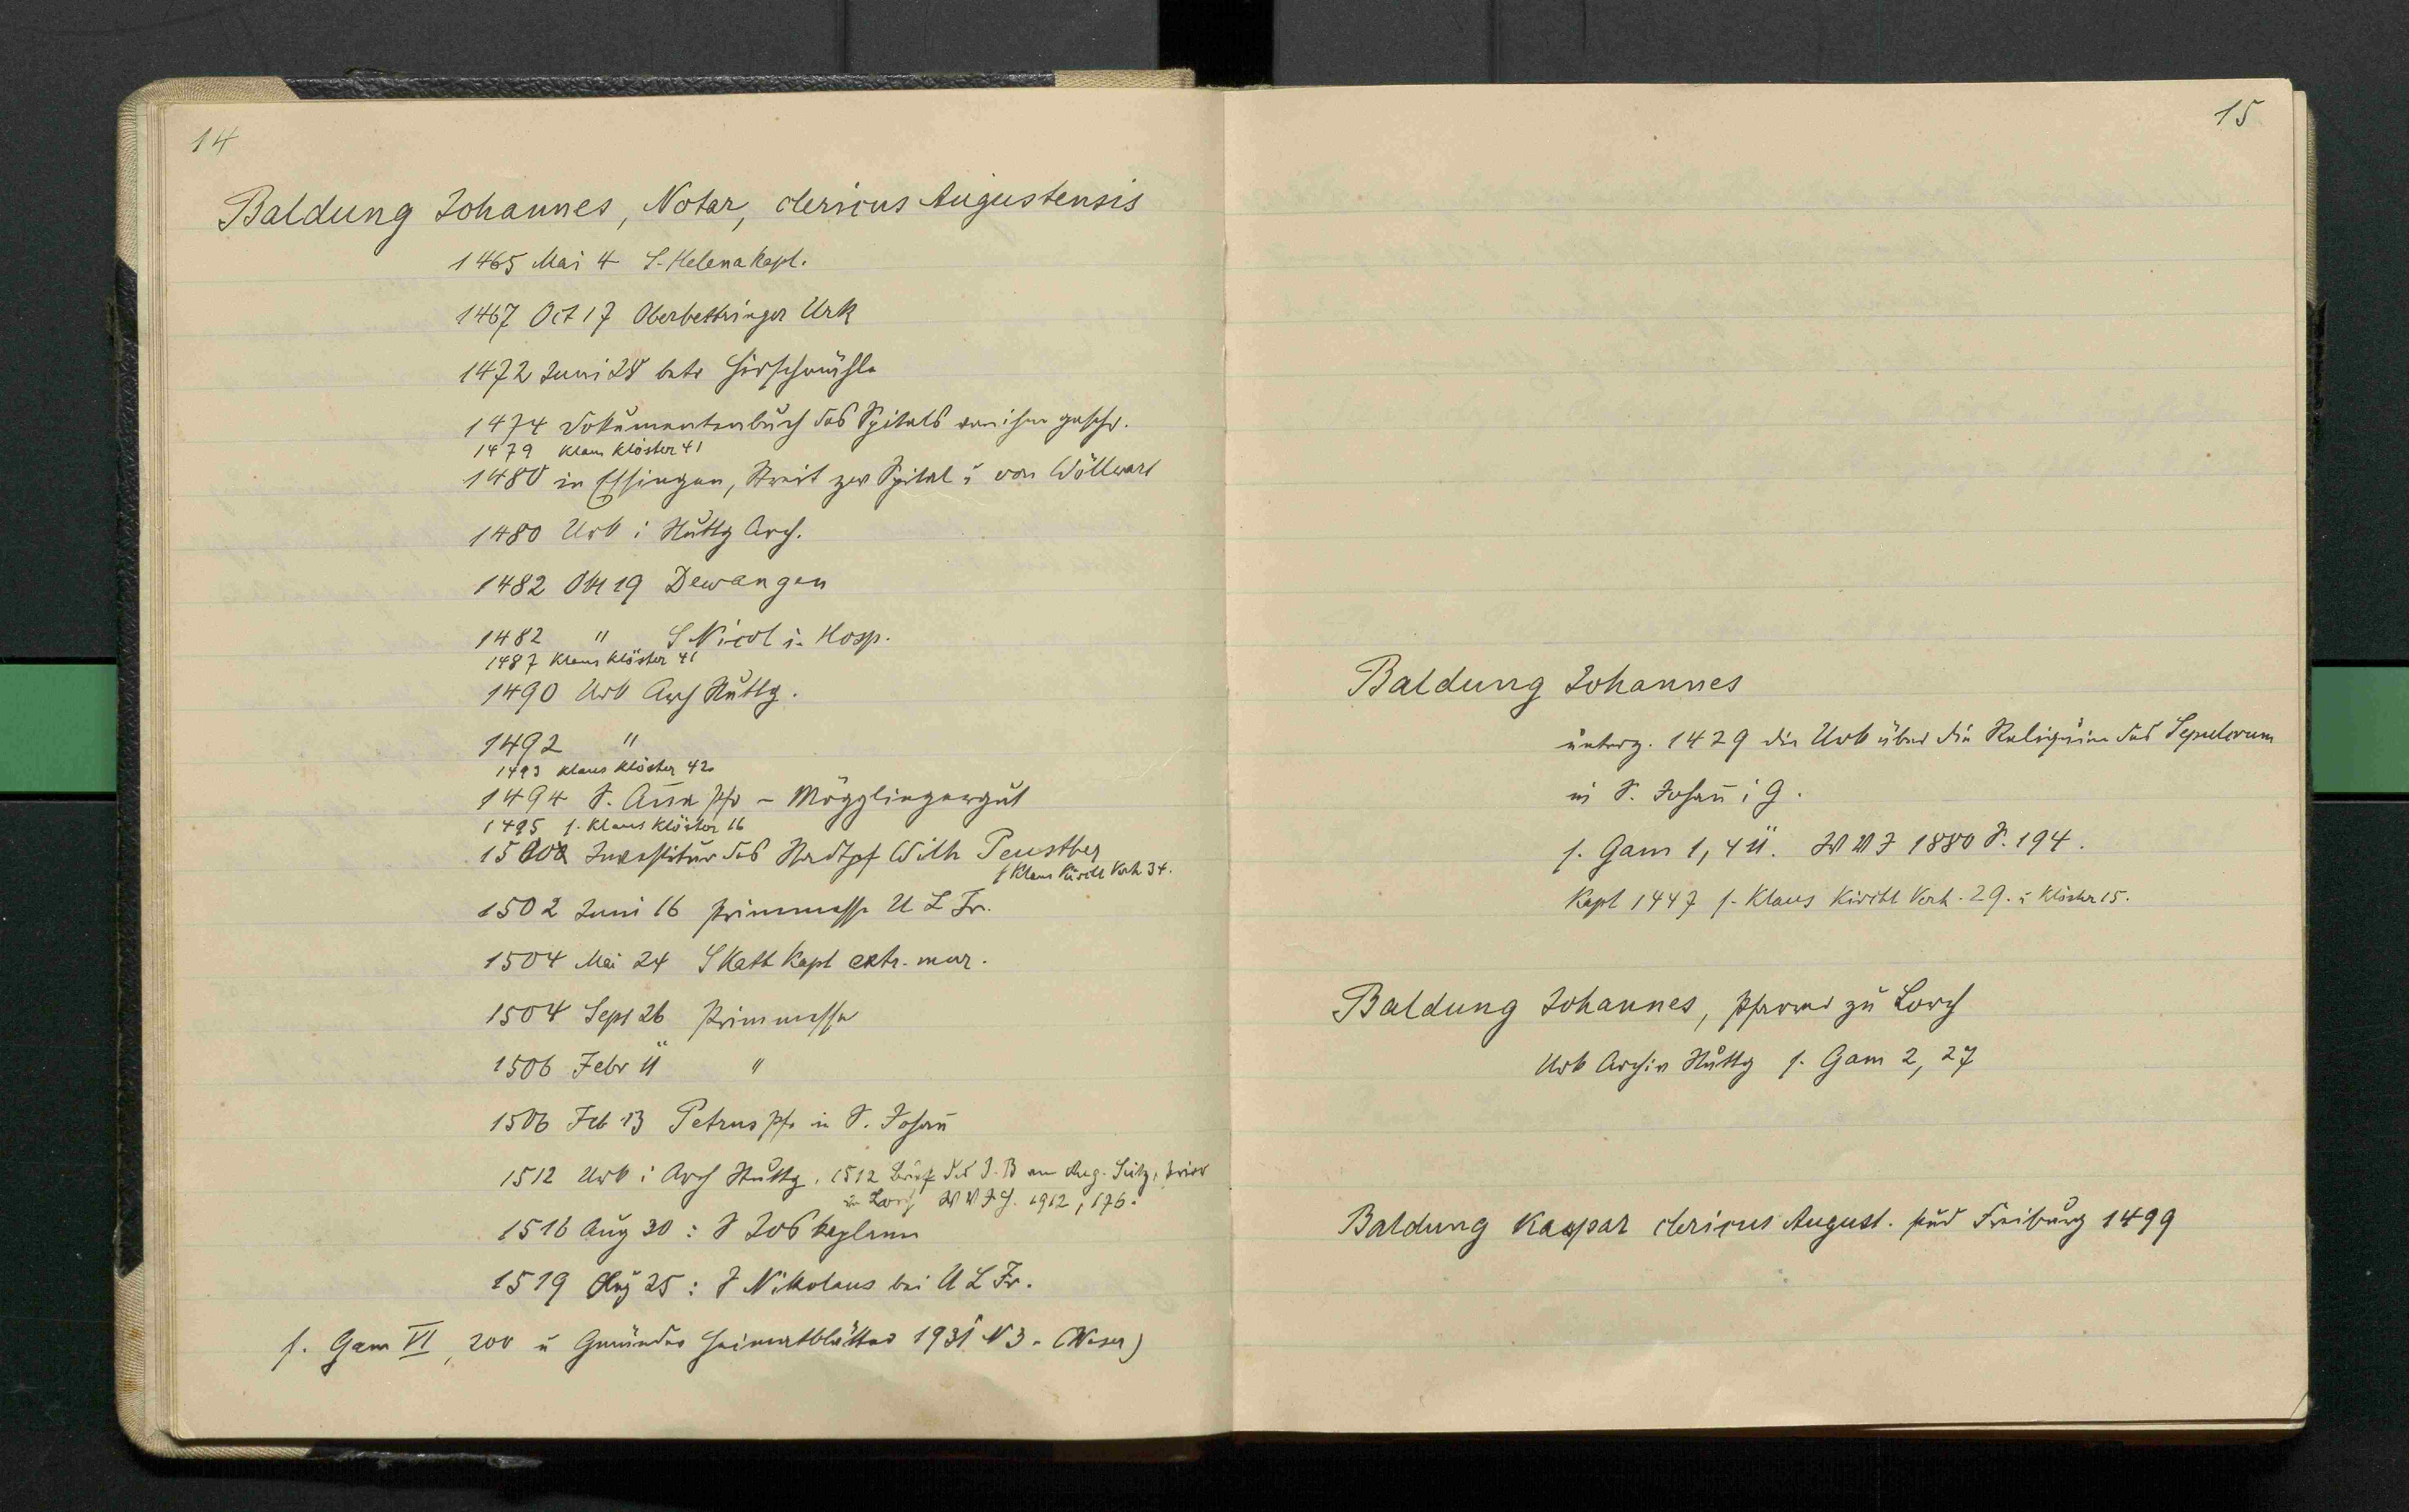 14
Baldung Johannes, Notar, clericus Augustensis
1465 Mai 4 S. Helena kapl.
1467 Oct 17 Oberbettringer Urk
1472 Juni 28 betr Hirschmühle
1474 Dokumentenbuch des Spitals von ihm geschr.
1479 Klaus Klöster 41
1480 in Essingen, Streit zw Spital u von Wöllwart
1480 Urk i Stuttg Arch.
1482 Okt 19 Dewangen
1482 " S Nicol i. Hosp.
1487 Klaus Klöster 41
1490 Urk Arch Stuttg.
1492 "
1493 Klaus Klöster 42
1494 S. Anna Pfr - Mögglingergut
1495 s. Klaus Klöster 16
Investitur des Stadtpf Wilh
s Klaus Kirchl Verh 34.
1502 Juni 16 Primmesse U L Fr.
1504 Mai 24 S Kath Kapl extr. mur.
1504 Sept 26 Primmesse
1506 Febr 11 "
1506 Feb 13 Petruspfr in S. Johann
1512 Urk i Arch Stuttg, 1512 Brief des J. B an Aug. Seitz, Prior
in Lorch W V J H. 1912, 176.
1516 Aug 30: S Jos kaplan
1519 Aug 25: S Nikolaus bei U L Fr.
s. Gam VI, 200 u Gmünder Heimatblätter 1931 N 3. (Weser)
15
Baldung Johannes
unterz. 1429 die Urk über die Reliquien des Sepulcrum
in S. Johann i G.
s. Gam 1, 411. W V J 1880 S. 194.
Kapl 1447 s. Klaus Kirchl Verh. 29. u Klöster 15.
Baldung Johannes, Pfarrer zu Lorch
Urk Archiv Stuttg s. Gam 2, 27
Baldung Kaspar clericus August. stud Freiburg 1499